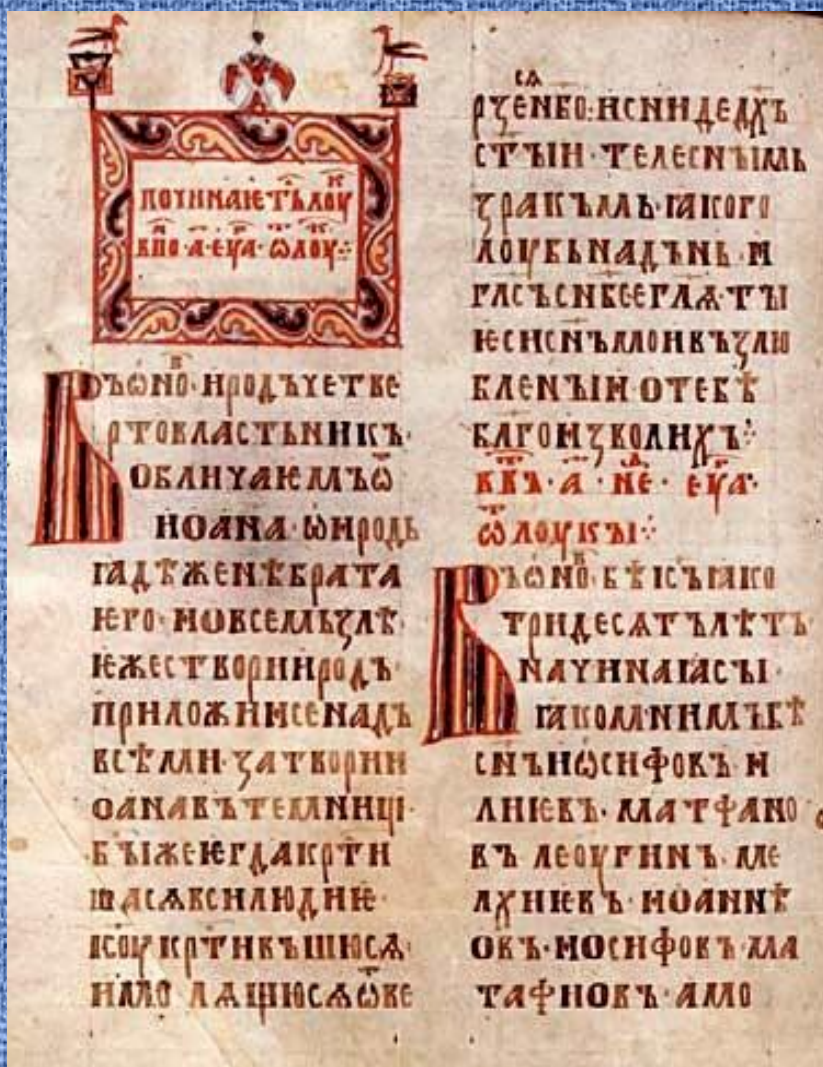 починаѥтълоу к
кпо·а·еуа·ѡлоу
Въѡно в·иродъчетве
ртовластьникъ·
обличаѥмъѡ
иоана·ѡирода
ꙗдѣженѣбрата
ѥго·иовсемьꙁлѣ·
ѥжествориродъ·
приложиисенадъ
всѣми·ꙁатвории
оанавътемници·
быжеюгдакрти
шасѧвсилюдиѥ·
ꙇсоукртивъшюсѧ·
имолѧщюсѧѿве
сѧ
рꙁенбо·исниде дх҃ъ
стыи·телеснымь
ꙁракъмь·ꙗкого
лоубьнадънь·и
гласъснбсеглѧ·ты
ѥсиснъмоивъꙁлю
бленыиотебѣ
благоиꙁволихъ·
ввъ·а·не·еуа·
ѿлоукы
Въѡно в·бѣісъꙗко
тридесѧтълѣтъ
начинаꙗсы·
ꙗкомнимъбѣ
снъиѡсифовъ·и
лиѥвъ·матфано
въ леоугиинъ·ме
лхиѥвъ·иоаннѣ
овъ·иосифовъ·ма
тафиовъ·амо